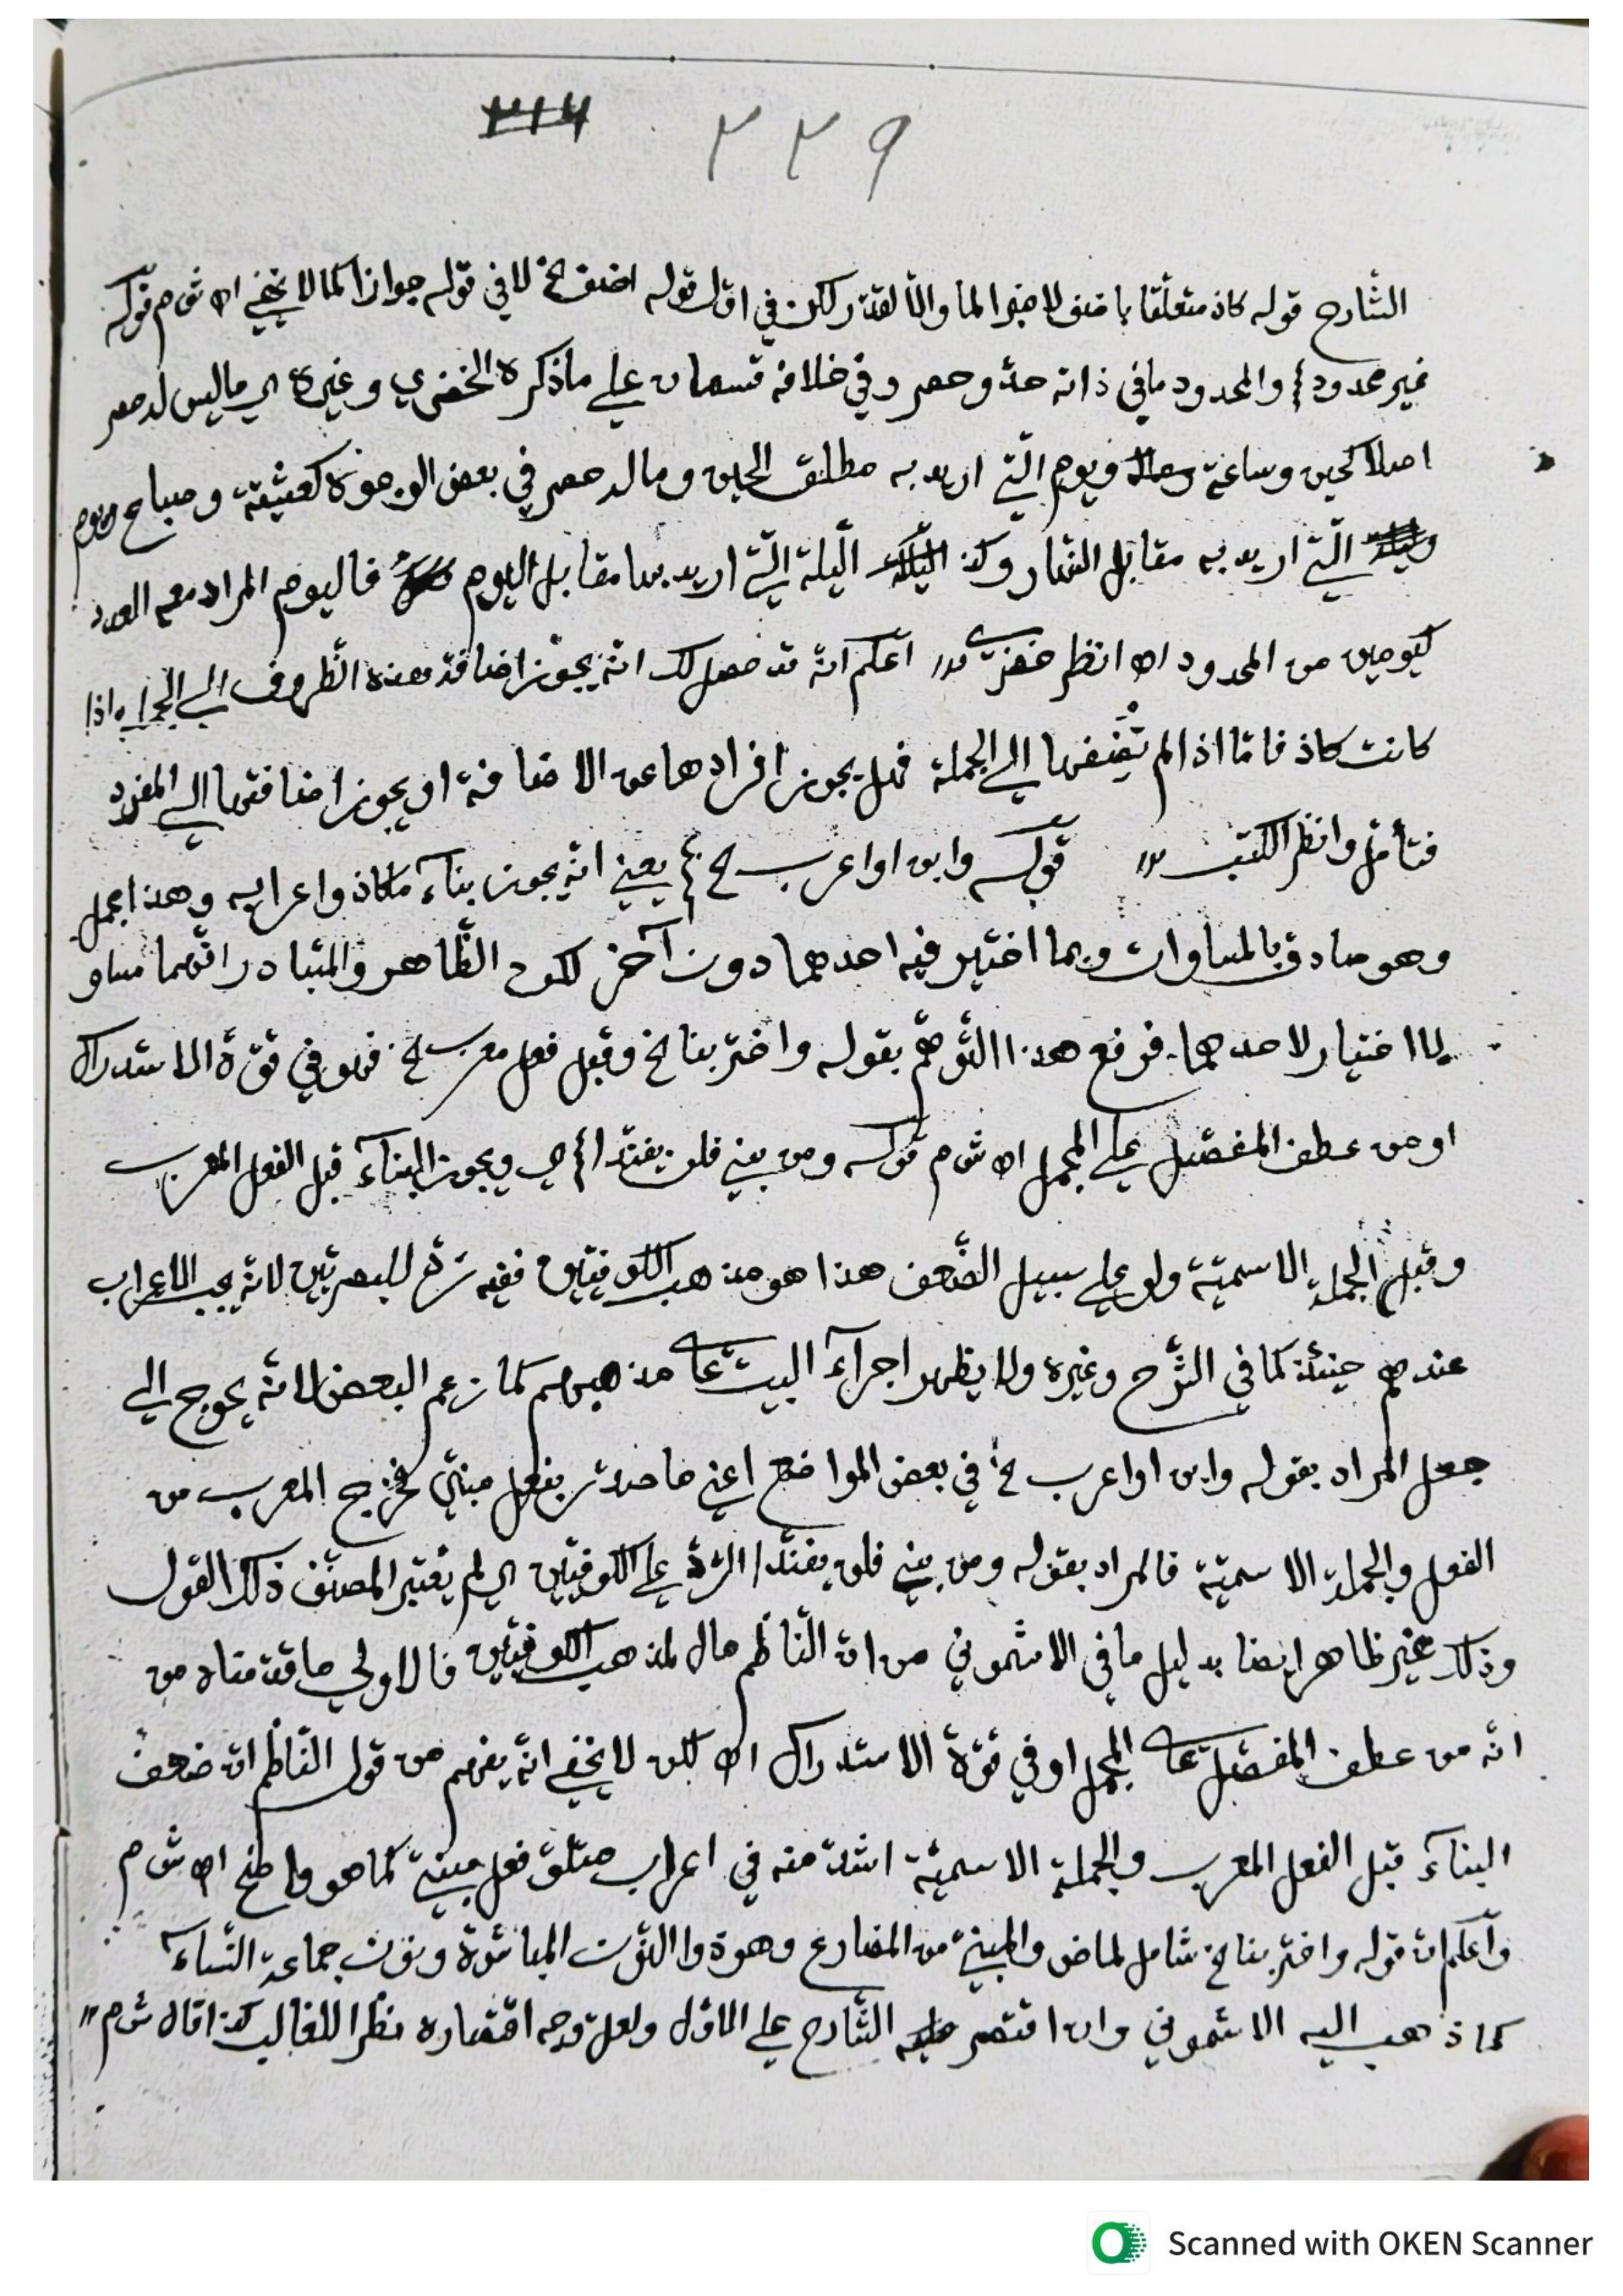 ٣١٤ ٣٣٩
الشارح قوله كاذ متعلقا باضف لا خبرا لما والا لقدر لكن في اول قوله اضف لخ لا في قوله جوازا كما لا يخفى اه ش م قوله
غير محدود أي والمحدود ما في ذاته حدّ وحصر وفي خلافه قسمان على ما ذكره الخضري وغيره اي ما ليس له حصر
اصلا كحين وساعة ويوم الّتي اريد به مطلق الحين وما له حصر في بعض الوجوه كعشيّة وصباح ويوم
الّتي اريد به مقابل النهار وكذ الّليلة الّتي اريد بها مقابل اليوم فاليوم المراد معه العدد
كيومين من المحدود اه انظر خضري اعلم انّه قد حصل لك انّه يجوز اضافة هذه الظّروف الى الجملة اذا
كانت كاذ فامّا اذا لم تضفها الى الجملة فهل يجوز افرادها عن الاضافة او يجوز اضافتها الى المفرد
فتأمل وانظر الكتب قوله وابن او اعرب لخ أي يعني انّه يجوز بناء ما كاذ واعرابه وهذا مجمل
وهو صادق بالمساوات وبما اختير فيه احدهما دون آخر لكن الظّاهر والمتبادر انّهما مساو
بلا اختيار لاحدهما فرفع هذا التّوهّم بقوله واختر بنا لخ وقبل فعل معرب لخ فهو في قوّة الاستدراك
او من عطف المفصّل على المجمل اه ش م قوله ومن بنى فلن يفنّدا أي ويجوز البناء قبل الفعل المعرب
وقبل الجملة الاسميّة ولو على سبيل الضّعف هذا هو مذهب الكوفيّين ففيه ردّ للبصريّين لانّه يجب الاعراب
عندهم حينئذ كما في الشّرح وغيره ولا يظهر اجراء البيت على مذهبهم كما زعم البعض لانّه يحوج الى
جعل المراد بقوله وابن او اعرب لخ في بعض المواضع اعني ما صدّر بفعل مبنيّ فخرج المعرب من
الفعل والجملة الاسميّة فالمراد بقوله ومن بنى فلن يفنّدا الرّدّ على الكوفيّين اي لم يعتبر المصنّف ذلك القول
وذلك غير ظاهر ايضا بدليل ما في الاشموني من انّ النّاظم مال لمذهب الكوفيّين فالاولى ما قدّمناه من
انّه من عطف المفصّل على المجمل او في قوّة الاستدراك اه لكن لا يخفى انّه يفهم من قول النّاظم انّ ضعف
البناء قبل الفعل المعرب والجملة الاسميّة اشدّ منه في اعراب متلوّ فعل مبنيّ كما هو واضح اه ش م
واعلم انّ قوله واختر بنا لخ شامل لماض والمبنيّ من المضارع وهو ذوا النّون المباشرة ونون جماعة النّساء
كما ذهب اليه الاشموني وان اقتصر الشّارح على الاوّل ولعلّ وجه اقتصاره نظرا للغالب كذا قال ش م
Scanned with OKEN Scanner